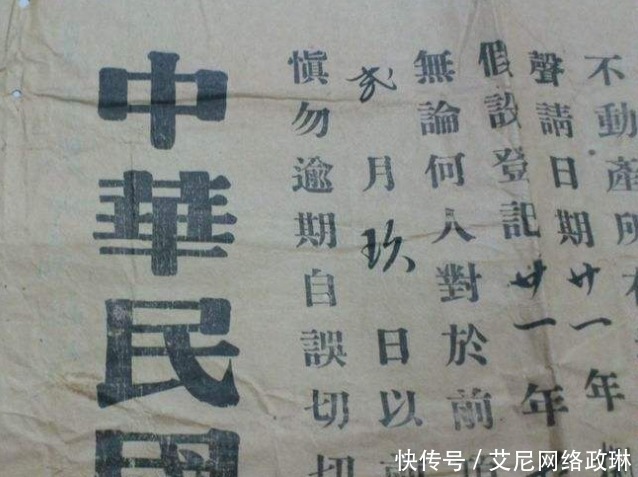 不動產所
聲請日期廿一年
假設登記廿一年
無論何人對於前項
弍月玖日以前
慎勿逾期自誤切切
中華民國
快传号/艾尼网络政琳